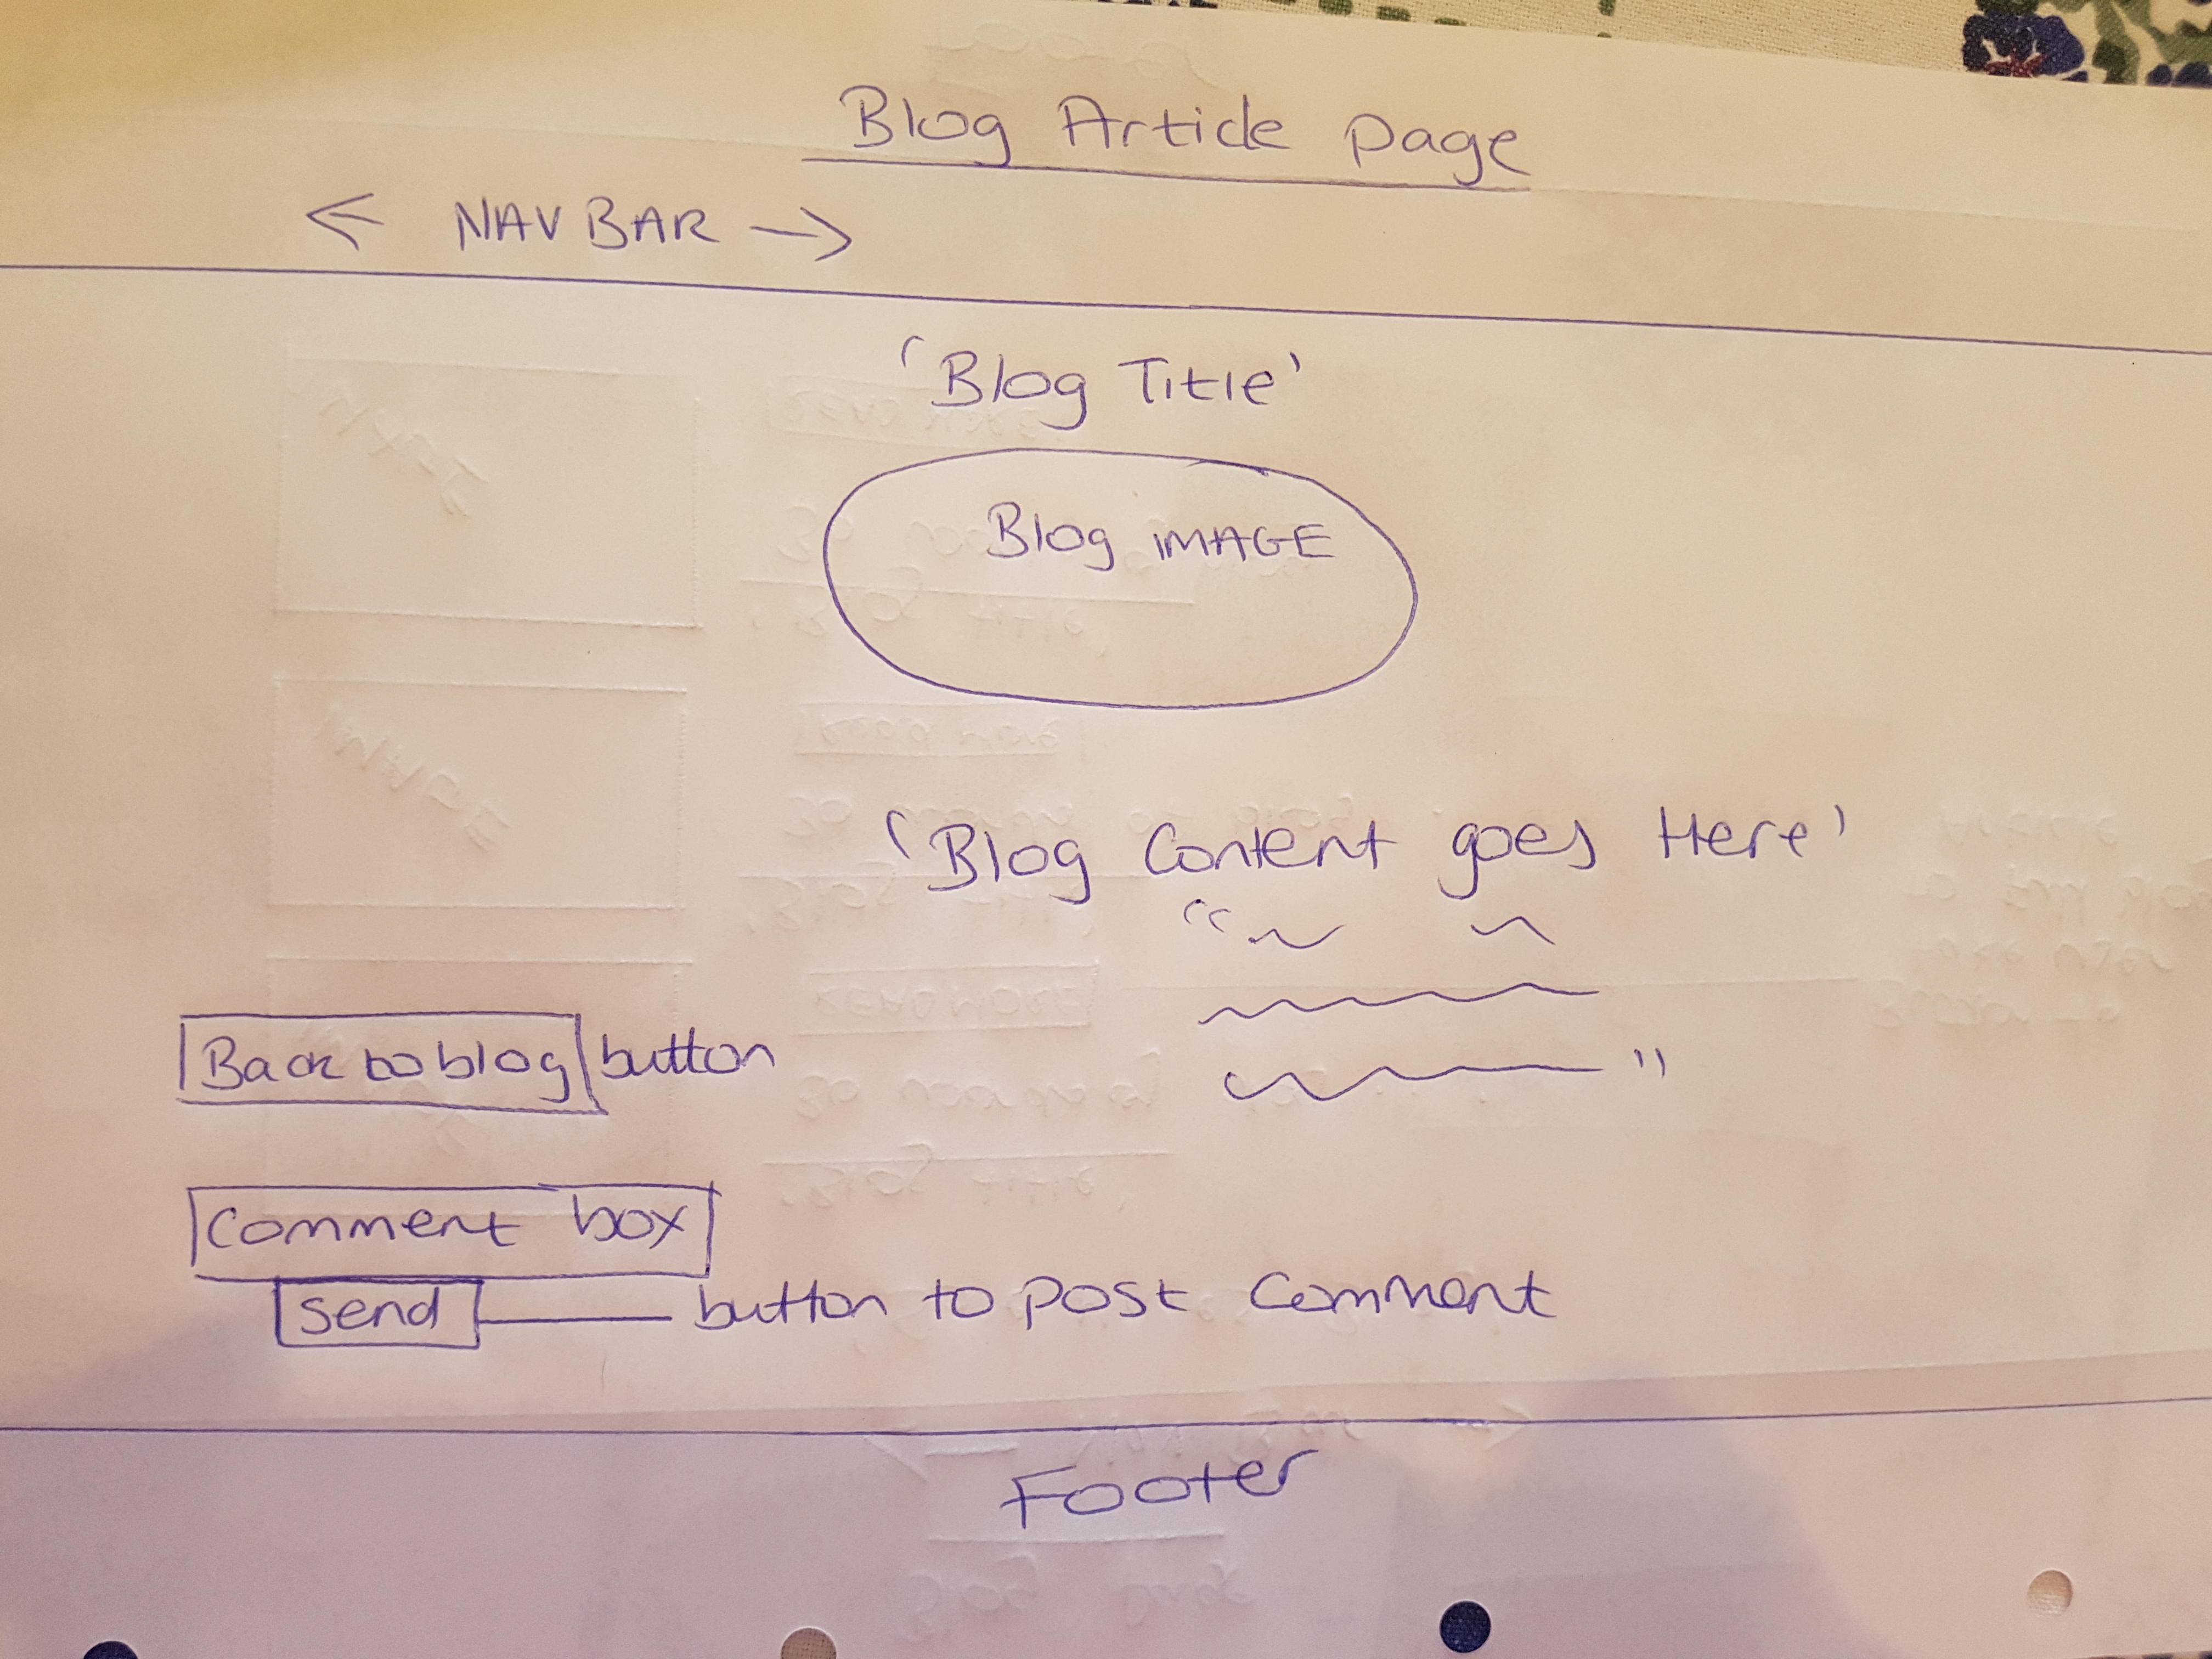 Blog Article page
← NAV BAR →
'Blog Title'
Blog IMAGE
'Blog Content goes Here'
Back to blog button
Comment box
Send button to post comment
Footer